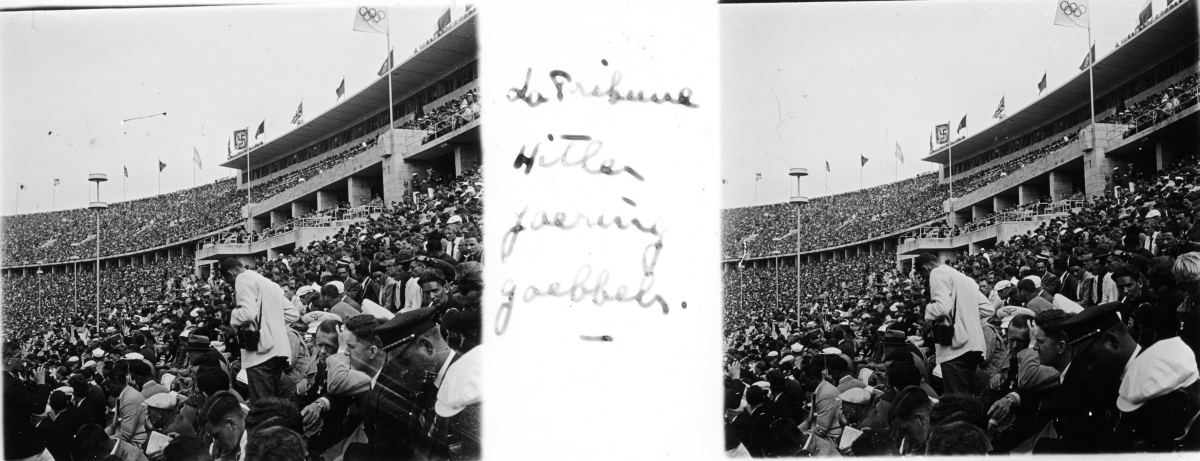 La Tribune
Hitler
goering
goebbels.